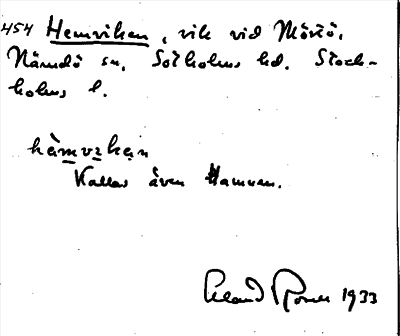 454 Hemviken, vik vid Mörtö,
Nämdö sn, Sotholms hd. Stock-
holms l.
hämvikan
Kallas även Hamnen.
Roland Roner 1933